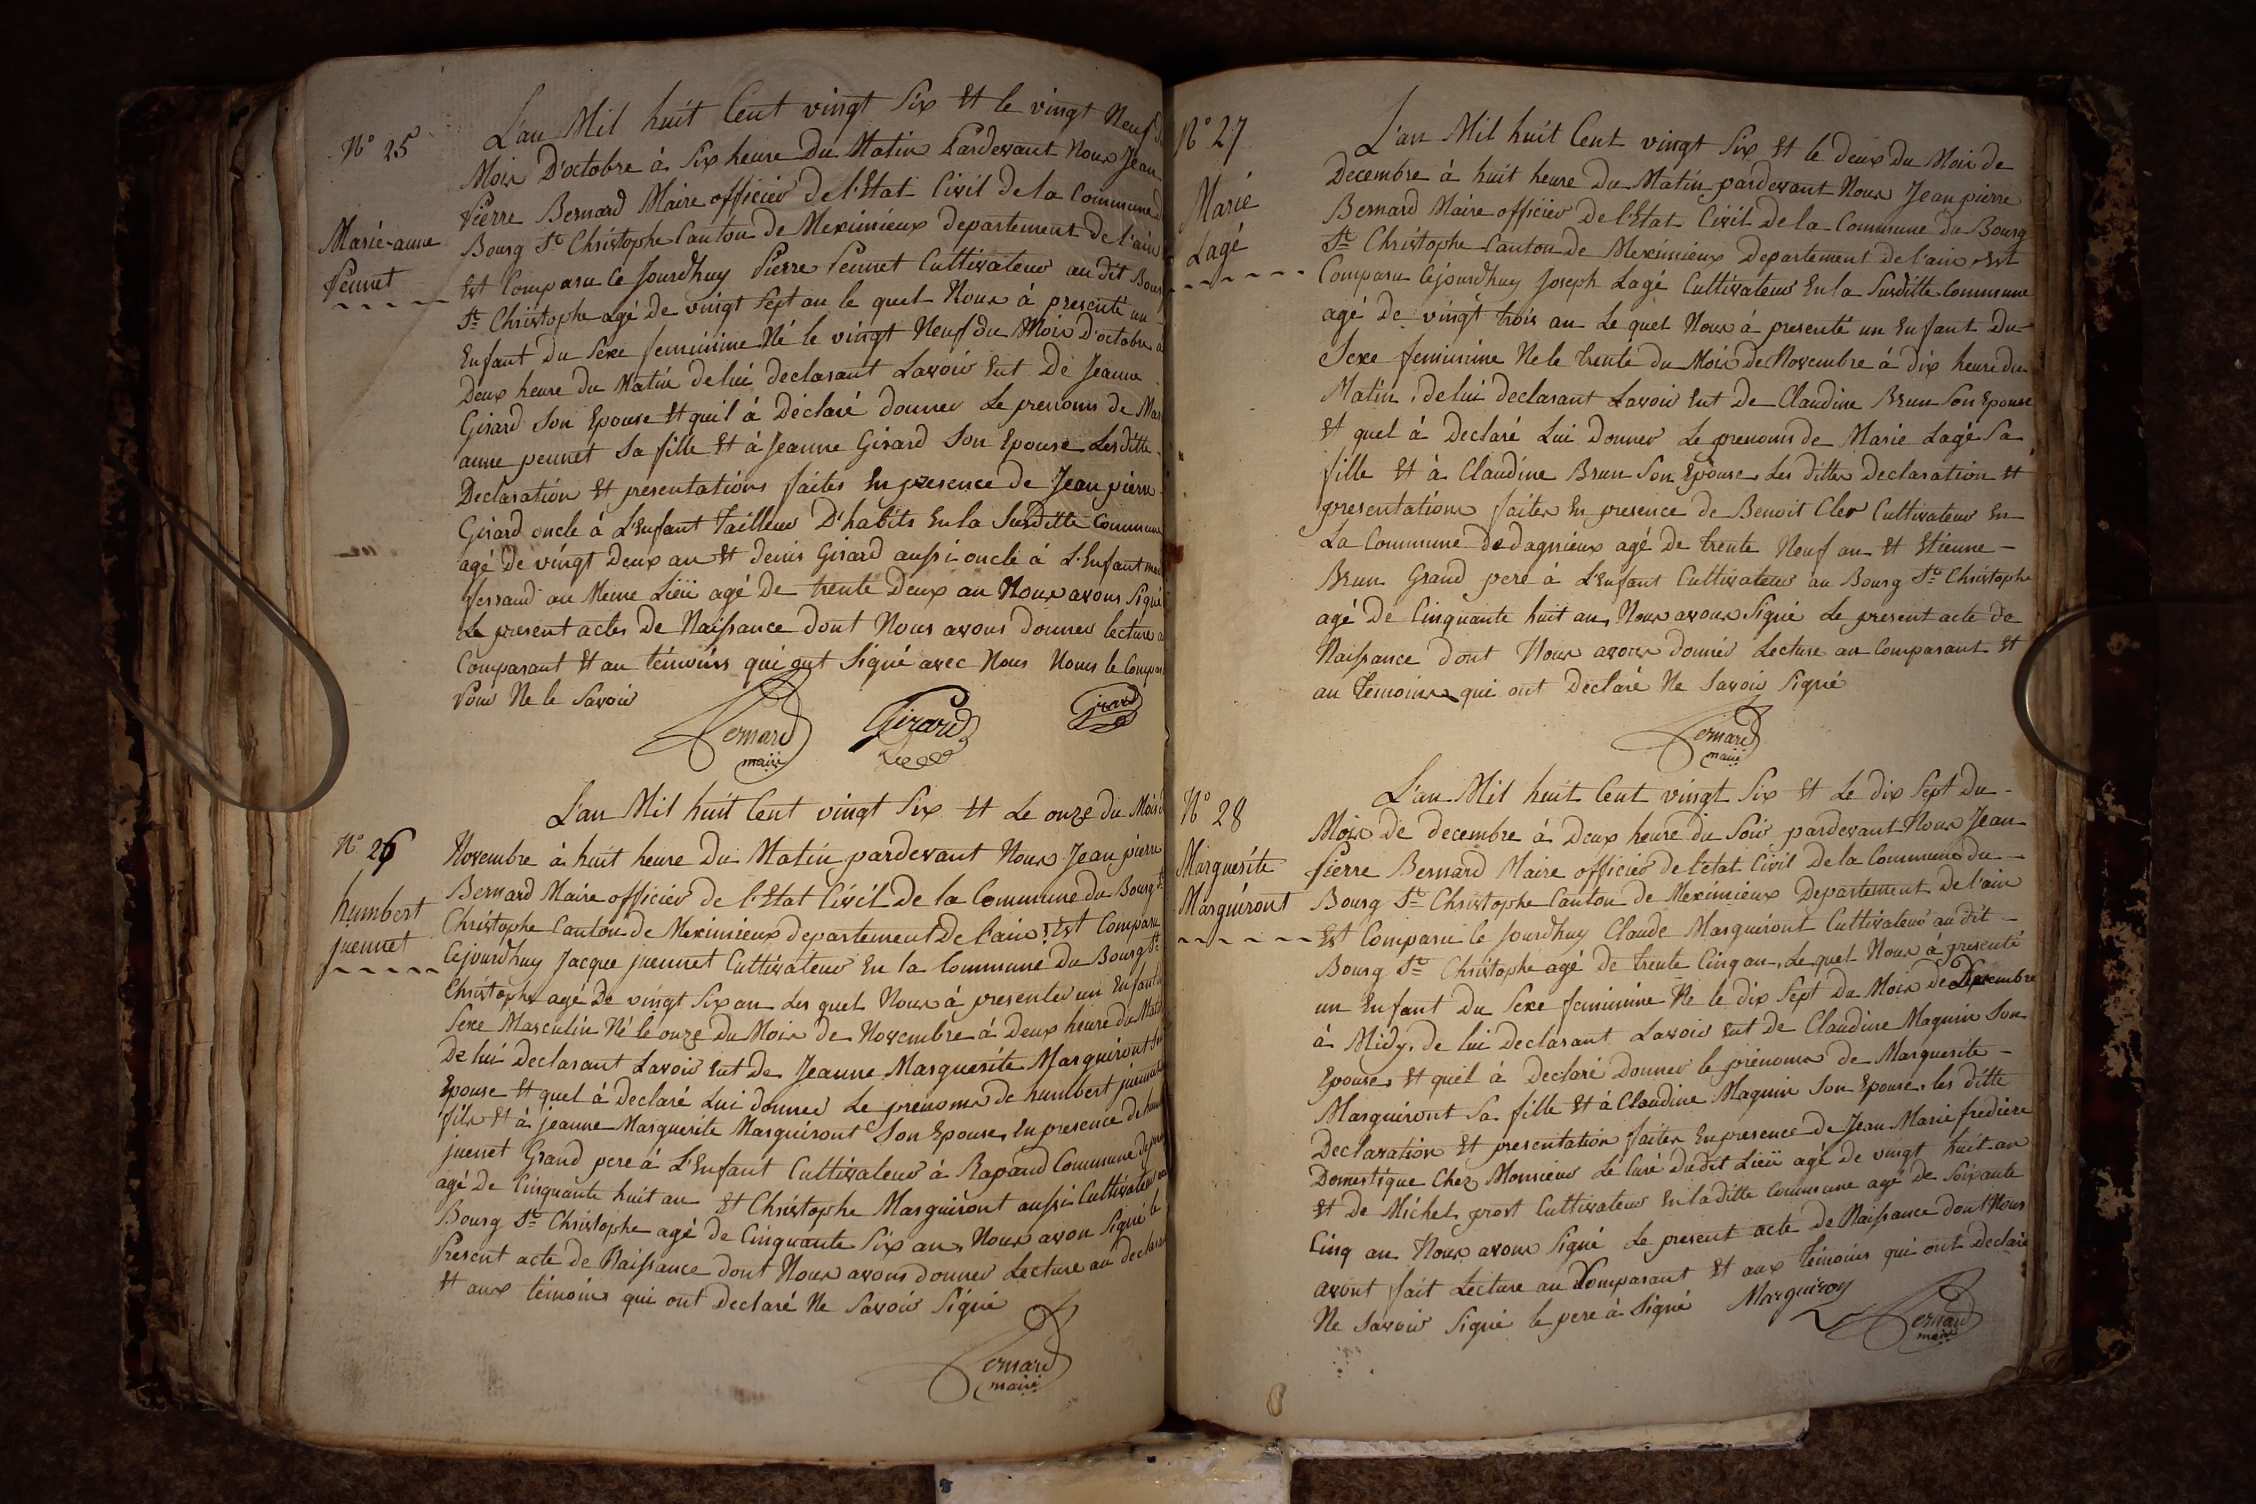 N° 25
Marie-anne
Pennet
L'an Mil huit Cent vingt Six Et le vingt Neuf
Mois D'octobre à Six heure Du Matin Pardevant Nous Jean
Pierre Bernard Maire officier de l'Etat Civil de la Commune
Bourg St Christophe Canton de Meximieux departement de l'ain
Est Comparu Ce Jourdhuy Pierre Pennet Cultivateur au dit Bourg
St Christophe agé De vingt Sept an le quel Nous à presenté un
Enfant Du Sexe feminine Né le vingt Neuf du Mois D'octobre à
Deux heure du Matin de lui declarant Lavoir Eut De Jeanne
Girard Son Epouse Et quil à Déclaré donner Le prenoms de Mar
anne pennet Sa fille Et à Jeanne Girard Son Epouse Les ditte
Declaration Et presentations faites En presence de Jean pierre
Girard oncle à L'Enfant Tailleur D'habits En la Susditte Commune
agé De vingt Deux an Et denis Girard aussi oncle à L'Enfant
au Meme Lieü agé De trente Deux an Nous avons Signé
Le present actes De Naissance dont Nous avons donner lecture a
Comparant Et au témoins qui ont Signé avec Nous Nonis le Compar
Pour Ne le Savoir
Bernard
maire
Girard
Girard
N° 26
humbert
juennet
L'an Mil huit Cent vingt Six Et Le onze du Mois
Novembre à huit heure Du Matin pardevant Nous Jean pierre
Bernard Maire officier de l'Etat Civil De la Commune du Bourg St
Christophe Canton de Meximieux departement De l'ain Est Comparu
Cejourdhuy Jacque juennet Cultivateur En la Commune Du Bourg St
Christophe agé De vingt Six an Les quel Nous à presenter un Enfant
Sexe Masculin Né le onze Du Mois de Novembre à Deux heure du Matin
De lui Declarant Lavoir Eut De Jeanne Marguerite Marguiront Son
Epouse Et quel à declaré Lui donner Le prenoms de humbert juennet
fils Et à jeanne Marguerite Marguiront Son Epouse, En presence de
juenet Grand pere à L'Enfant Cultivateur à Rapand Commune de
agé De Cinquante huit an Et Christophe Marguiront aussi Cultivateur
Bourg St Christophe agé de Cinquante Six an, Nous avon Signé le
Present acte de Naissance dont Nous avons donner Lecture au declarant
Et aux témoins qui ont declaré Ne Savoir Signé
Bernard
maire
N° 27
Marie
Lagé
L'an Mil huit Cent vingt Six Et le deux Du Mois de
Decembre à huit heure Du Matin pardevant Nous Jean pierre
Bernard Maire officier De l'Etat Civil De la Commune du Bourg
St Christophe Canton de Meximieux Departement de l'ain Est
Comparu Cejourdhuy Joseph Lagé Cultivateur En la Susditte Commune
agé De vingt trois an Le quel Nous à presenté un Enfant Du
Sexe feminine Ne le trente du Mois de Novembre à dix heure du
Matin, de lui declarant Lavoir Eut De Claudine Brun Son Epouse
Et quel à Declaré Lui Donner Le prenoms de Marie Lagé Sa
fille Et à Claudine Brun Son Epouse, Les dittes Declaration Et
presentations faites En presence de Benoit Cler Cultivateur En
La Commune de dagnieux agé De trente Neuf an Et Etienne
Brun Grand pere à L'Enfant Cultivateur au Bourg St Christophe
agé De Cinquante huit an, Nous avons Signé Le present acte de
Naissance dont Nous avons donnér Lecture au Comparant Et
au temoins qui ont Declaré Ne Savoir Signé
Bernard
maire
N° 28
Marguerite
Marguiront
L'an Mil huit Cent vingt Six Et Le dix Sept Du
Mois De decembre à Deux heure du Soir pardevant Nous Jean
Pierre Bernard Maire officier de l'etat Civil De la Commune du
Bourg St Christophe Canton de Meximieux Departement De l'ain
Est Comparu le Jourdhuy Claude Marguiront Cultivateur au dit
Bourg St Christophe agé de trente Cinq an, Le quel Nous à presenté
un Enfant Du Sexe feminine Ne le dix Sept Du Mois de Decembre
à Midy, de lui Declarant Lavoir Eut de Claudine Maquin Son
Epouse, Et quil à Declaré Donner le prenoms de Marguerite
Marguiront Sa fille Et à Claudine Maquin Son Epouse, les ditte
Declaration Et presentation faites En presence de Jean Marie frediere
Domestique Chez Monsieur Le Curé Dudit Lieü agé De vingt huit an
Et de Michel prost Cultivateur En laditte Commune agé de Soixante
Cinq an Nous avons Signé Le present acte De Naissance dont Nous
avont fait Lecture au Comparant Et aux temoins qui ont Declaré
Ne Savoir Signé le pere à Signé
Marguiron
Bernard
maire